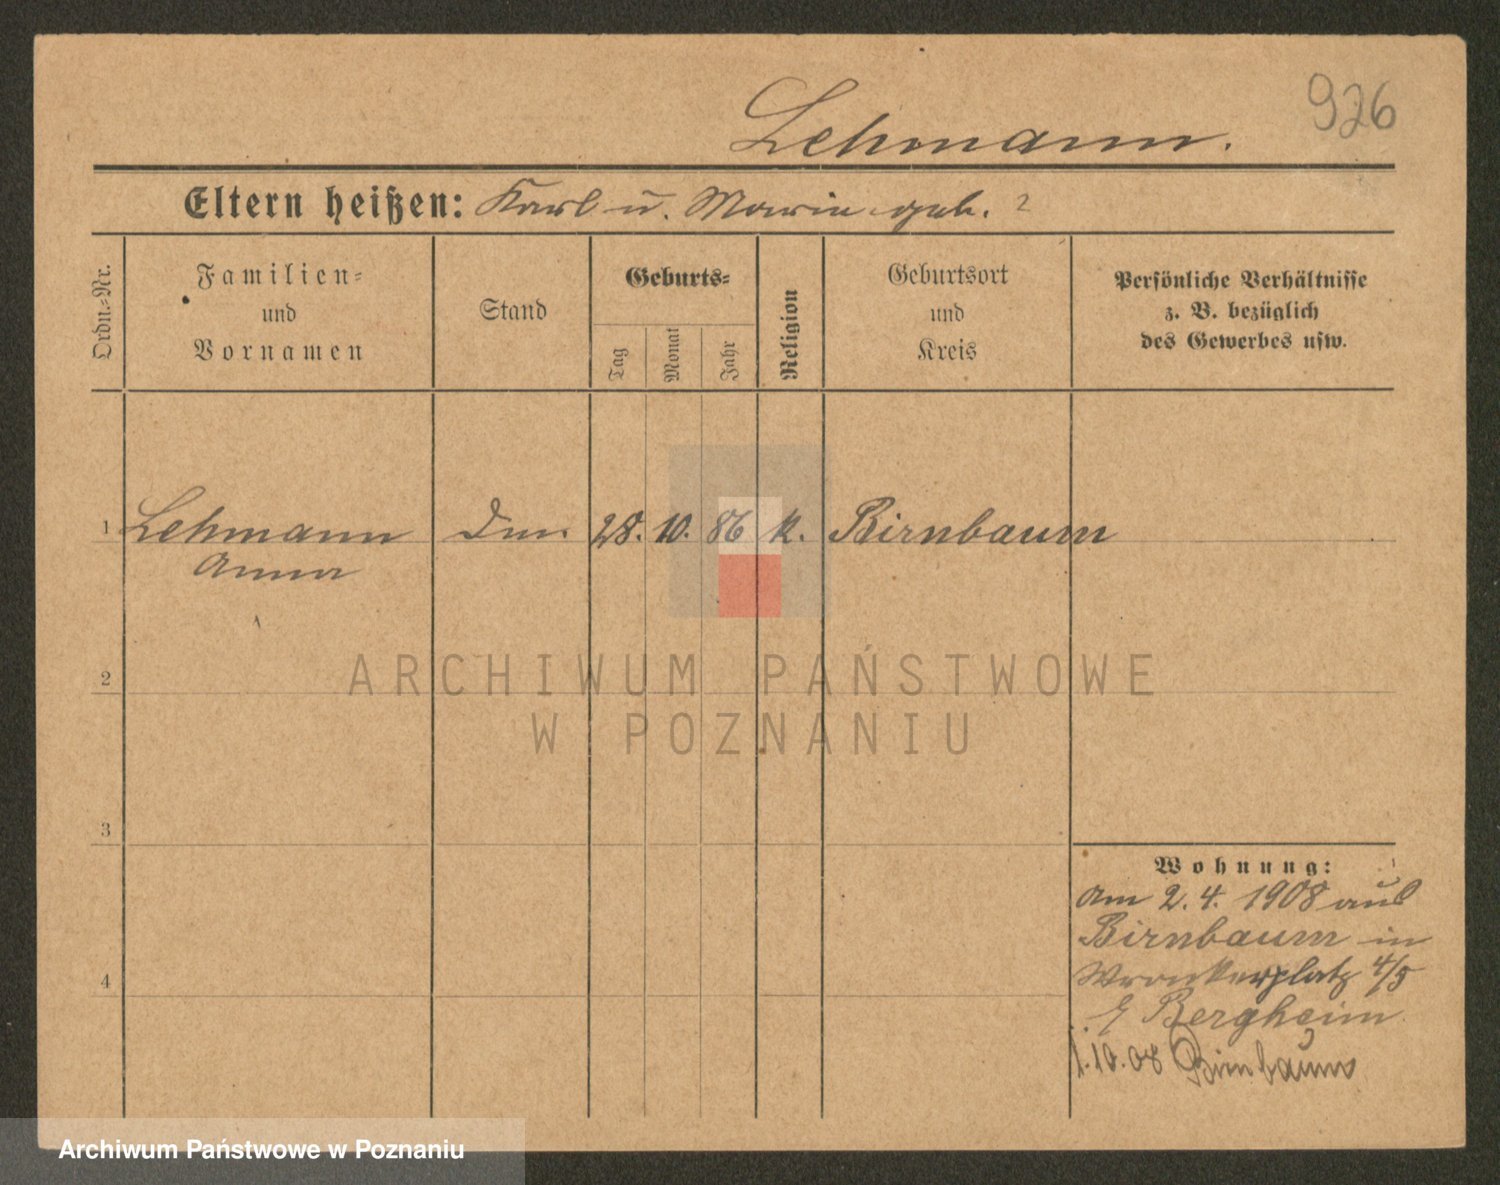 926
Lehmann.
Eltern heißen: Karl u. Marie geb. ?
Ordn.-Nr.
Familien-
und
Vornamen
Stand
Geburts-
Tag
Monat
Jahr
Religion
Geburtsort
und
Kreis
Persönliche Verhältnisse
z. B. bezüglich
des Gewerbes usw.
1 Lehmann 28. 10. 86 k. Birnbaum
Anna
2
3
4
Wohnung:
Am 2. 4. 1908 aus
Birnbaum in
Wronkerplatz 4/5
Bergheim.
1.10.08 Birnbaum
ARCHIWUM PAŃSTWOWE
W POZNANIU
Archiwum Państwowe w Poznaniu